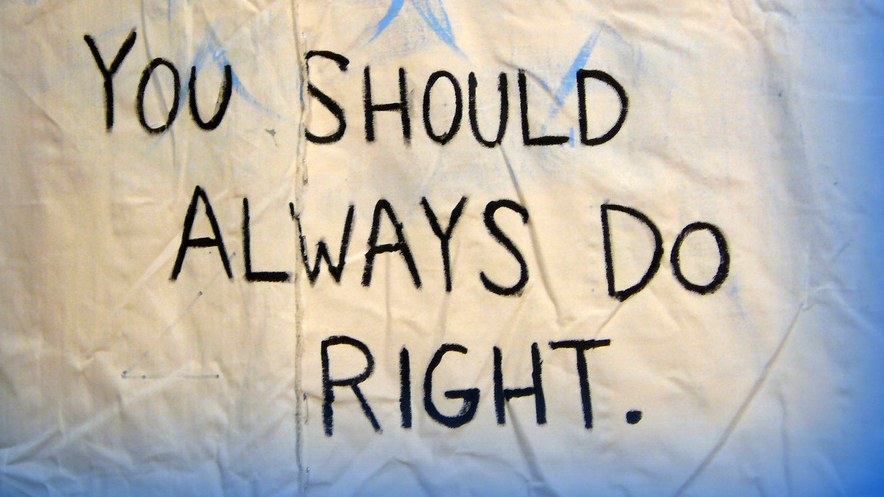 YOU SHOULD
ALWAYS DO
RIGHT.